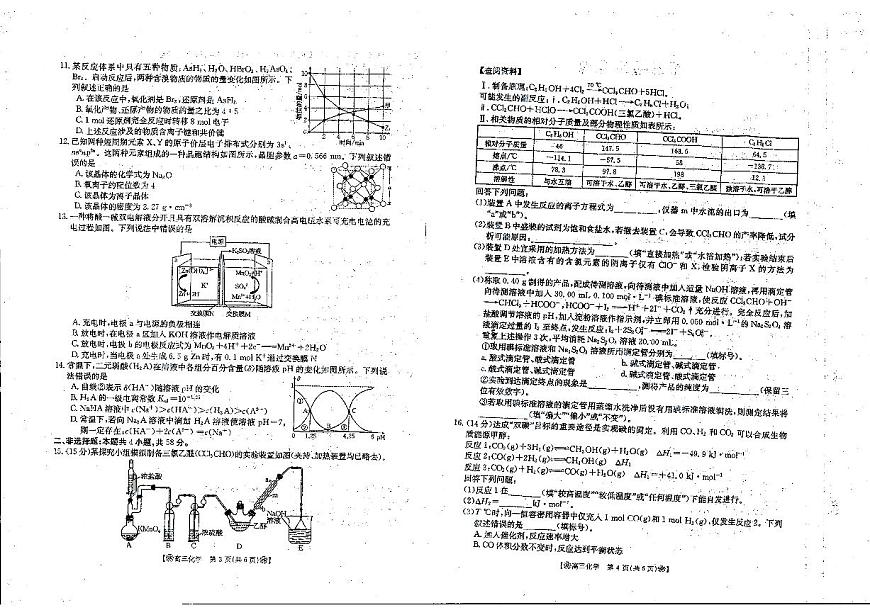 11. 某反应体系中只有五种物质:AsH₃、H₂O、HBrO₃、H₃AsO₄、
Br₂。启动反应后,两种含溴物质的物质的量变化如图所示。下
列叙述正确的是
A. 在该反应中,氧化剂是 Br₂,还原剂是 AsH₃
B. 氧化产物、还原产物的物质的量之比为 4∶5
C. 1 mol 还原剂完全反应时转移 8 mol 电子
D. 上述反应涉及的物质含离子键和共价键
时间/min
12. 已知两种短周期元素 X、Y 的原子价层电子排布式分别为 3s¹、
。这两种元素组成的一种晶胞结构如图所示,晶胞参数 a=0.566 nm。下列叙述错
误的是
A. 该晶体的化学式为 Na₂O
B. 氧离子的配位数为 4
C. 该晶体为离子晶体
D. 该晶体的密度为 2.27 g·cm⁻³
13. 一种将酸—碱双电解液分开且具有双溶解沉积反应的酸碱混合高电压水系可充电电池的充
电过程如图。下列说法中错误的是
电源
K₂SO₄溶液
交换膜N 交换膜M
A. 充电时,电极 a 与电源的负极相连
B. 放电时,在电极 a 区加入 KOH 溶液作电解质溶液
C. 放电时,电极 b 的电极反应式为 MnO₂+4H⁺+2e⁻══Mn²⁺+2H₂O
D. 充电时,当电极 a 处生成 6.5 g Zn 时,有 0.1 mol K⁺通过交换膜 N
14. 常温下,二元弱酸(H₂A)在溶液中各组分百分含量(δ)随溶液 pH 的变化如图所示。下列说
法错误的是
A. 曲线②表示 δ(HA⁻)随溶液 pH 的变化
B. H₂A 的一级电离常数
C. NaHA 溶液中 c(Na⁺)>c(HA⁻)>c(H₂A)>c(A²⁻)
D. 常温下,若向 Na₂A 溶液中滴加 H₂A 溶液使溶液 pH=7,
则一定存在:c(HA⁻)+2c(A²⁻)=c(Na⁺)
二、非选择题:本题共 4 小题,共 58 分。
15. (15 分)某探究小组模拟制备三氯乙醛(CCl₃CHO)的实验装置如图(夹持、加热装置均已略去)。
浓盐酸
KMnO₄
浓硫酸
乙醇
NaOH
溶液
A B C D E
高三化学 第 3 页(共 6 页)
【查阅资料】
Ⅰ. 制备原理:C₂H₅OH+4Cl₂ 70℃ CCl₃CHO+5HCl。
可能发生的副反应:ⅰ. C₂H₅OH+HCl⟶C₂H₅Cl+H₂O;
ⅱ. CCl₃CHO+HClO⟶CCl₃COOH(三氯乙酸)+HCl。
Ⅱ. 相关物质的相对分子质量及部分物理性质如表所示:
C₂H₅OH CCl₃CHO CCl₃COOH C₂H₅Cl
相对分子质量 46 147.5 163.5 64.5
熔点/℃ −114.1 −57.5 58 −138.7
沸点/℃ 78.3 97.8 198 12.3
溶解性 与水互溶 可溶于水、乙醇 可溶于水、乙醇、三氯乙醛 微溶于水,可溶于乙醇
回答下列问题:
(1)装置 A 中发生反应的离子方程式为 ,仪器 m 中水流的出口为 (填
“a”或“b”)。
(2)装置 B 中盛装的试剂为饱和食盐水,若撤去装置 C,会导致 CCl₃CHO 的产率降低,试分
析可能原因:
(3)装置 D 处宜采用的加热方法为 (填“直接加热”或“水浴加热”);若实验结束后
装置 E 中溶液含有的含氯元素的阴离子仅有 ClO⁻和 X,检验阴离子 X 的方法为
(4)称取 0.40 g 制得的产品,配成待测溶液,向待测液中加入适量 NaOH 溶液,再用滴定管
向待测溶液中加入 30.00 mL 0.100 mol·L⁻¹碘标准溶液,使反应 CCl₃CHO+OH⁻
⟶CHCl₃+HCOO⁻、HCOO⁻+I₂══H⁺+2I⁻+CO₂↑充分进行。完全反应后,加
盐酸调节溶液的 pH,加入淀粉溶液作指示剂,并立即用 0.050 mol·L⁻¹的 Na₂S₂O₃溶
液滴定过量的 I₂ 至终点,发生反应:I₂+2S₂O₃²⁻══2I⁻+S₄O₆²⁻。
重复上述操作 3 次,平均消耗 Na₂S₂O₃ 溶液 20.00 mL。
①取用碘标准溶液和 Na₂S₂O₃ 溶液所用滴定管分别为 (填标号)。
a. 酸式滴定管、酸式滴定管 b. 碱式滴定管、碱式滴定管
c. 酸式滴定管、碱式滴定管 d. 碱式滴定管、酸式滴定管
②实验到达滴定终点的现象是 ,测得产品的纯度为 (保留三
位有效数字)。
③若取用碘标准溶液的滴定管用蒸馏水洗净后没有用碘标准溶液润洗,则测定结果将
(填“偏大”“偏小”或“不变”)。
16. (14 分)达成“双碳”目标的重要途径是实现碳的固定。利用 CO、H₂ 和 CO₂ 可以合成生物
质能源甲醇:
反应 1:CO₂(g)+3H₂(g)⇌CH₃OH(g)+H₂O(g) ΔH₁=−49.9 kJ·mol⁻¹
反应 2:CO(g)+2H₂(g)⇌CH₃OH(g) ΔH₂
反应 3:CO₂(g)+H₂(g)⇌CO(g)+H₂O(g) ΔH₃=+41.0 kJ·mol⁻¹
回答下列问题:
(1)反应 1 在 (填“较高温度”“较低温度”或“任何温度”)下能自发进行。
(2)ΔH₂= kJ·mol⁻¹。
(3)T ℃时,向一恒容密闭容器中仅充入 1 mol CO(g)和 1 mol H₂(g),仅发生反应 2。下列
叙述错误的是 (填标号)。
A. 加入催化剂,反应速率增大
B. CO 体积分数不变时,反应达到平衡状态
高三化学 第 4 页(共 6 页)